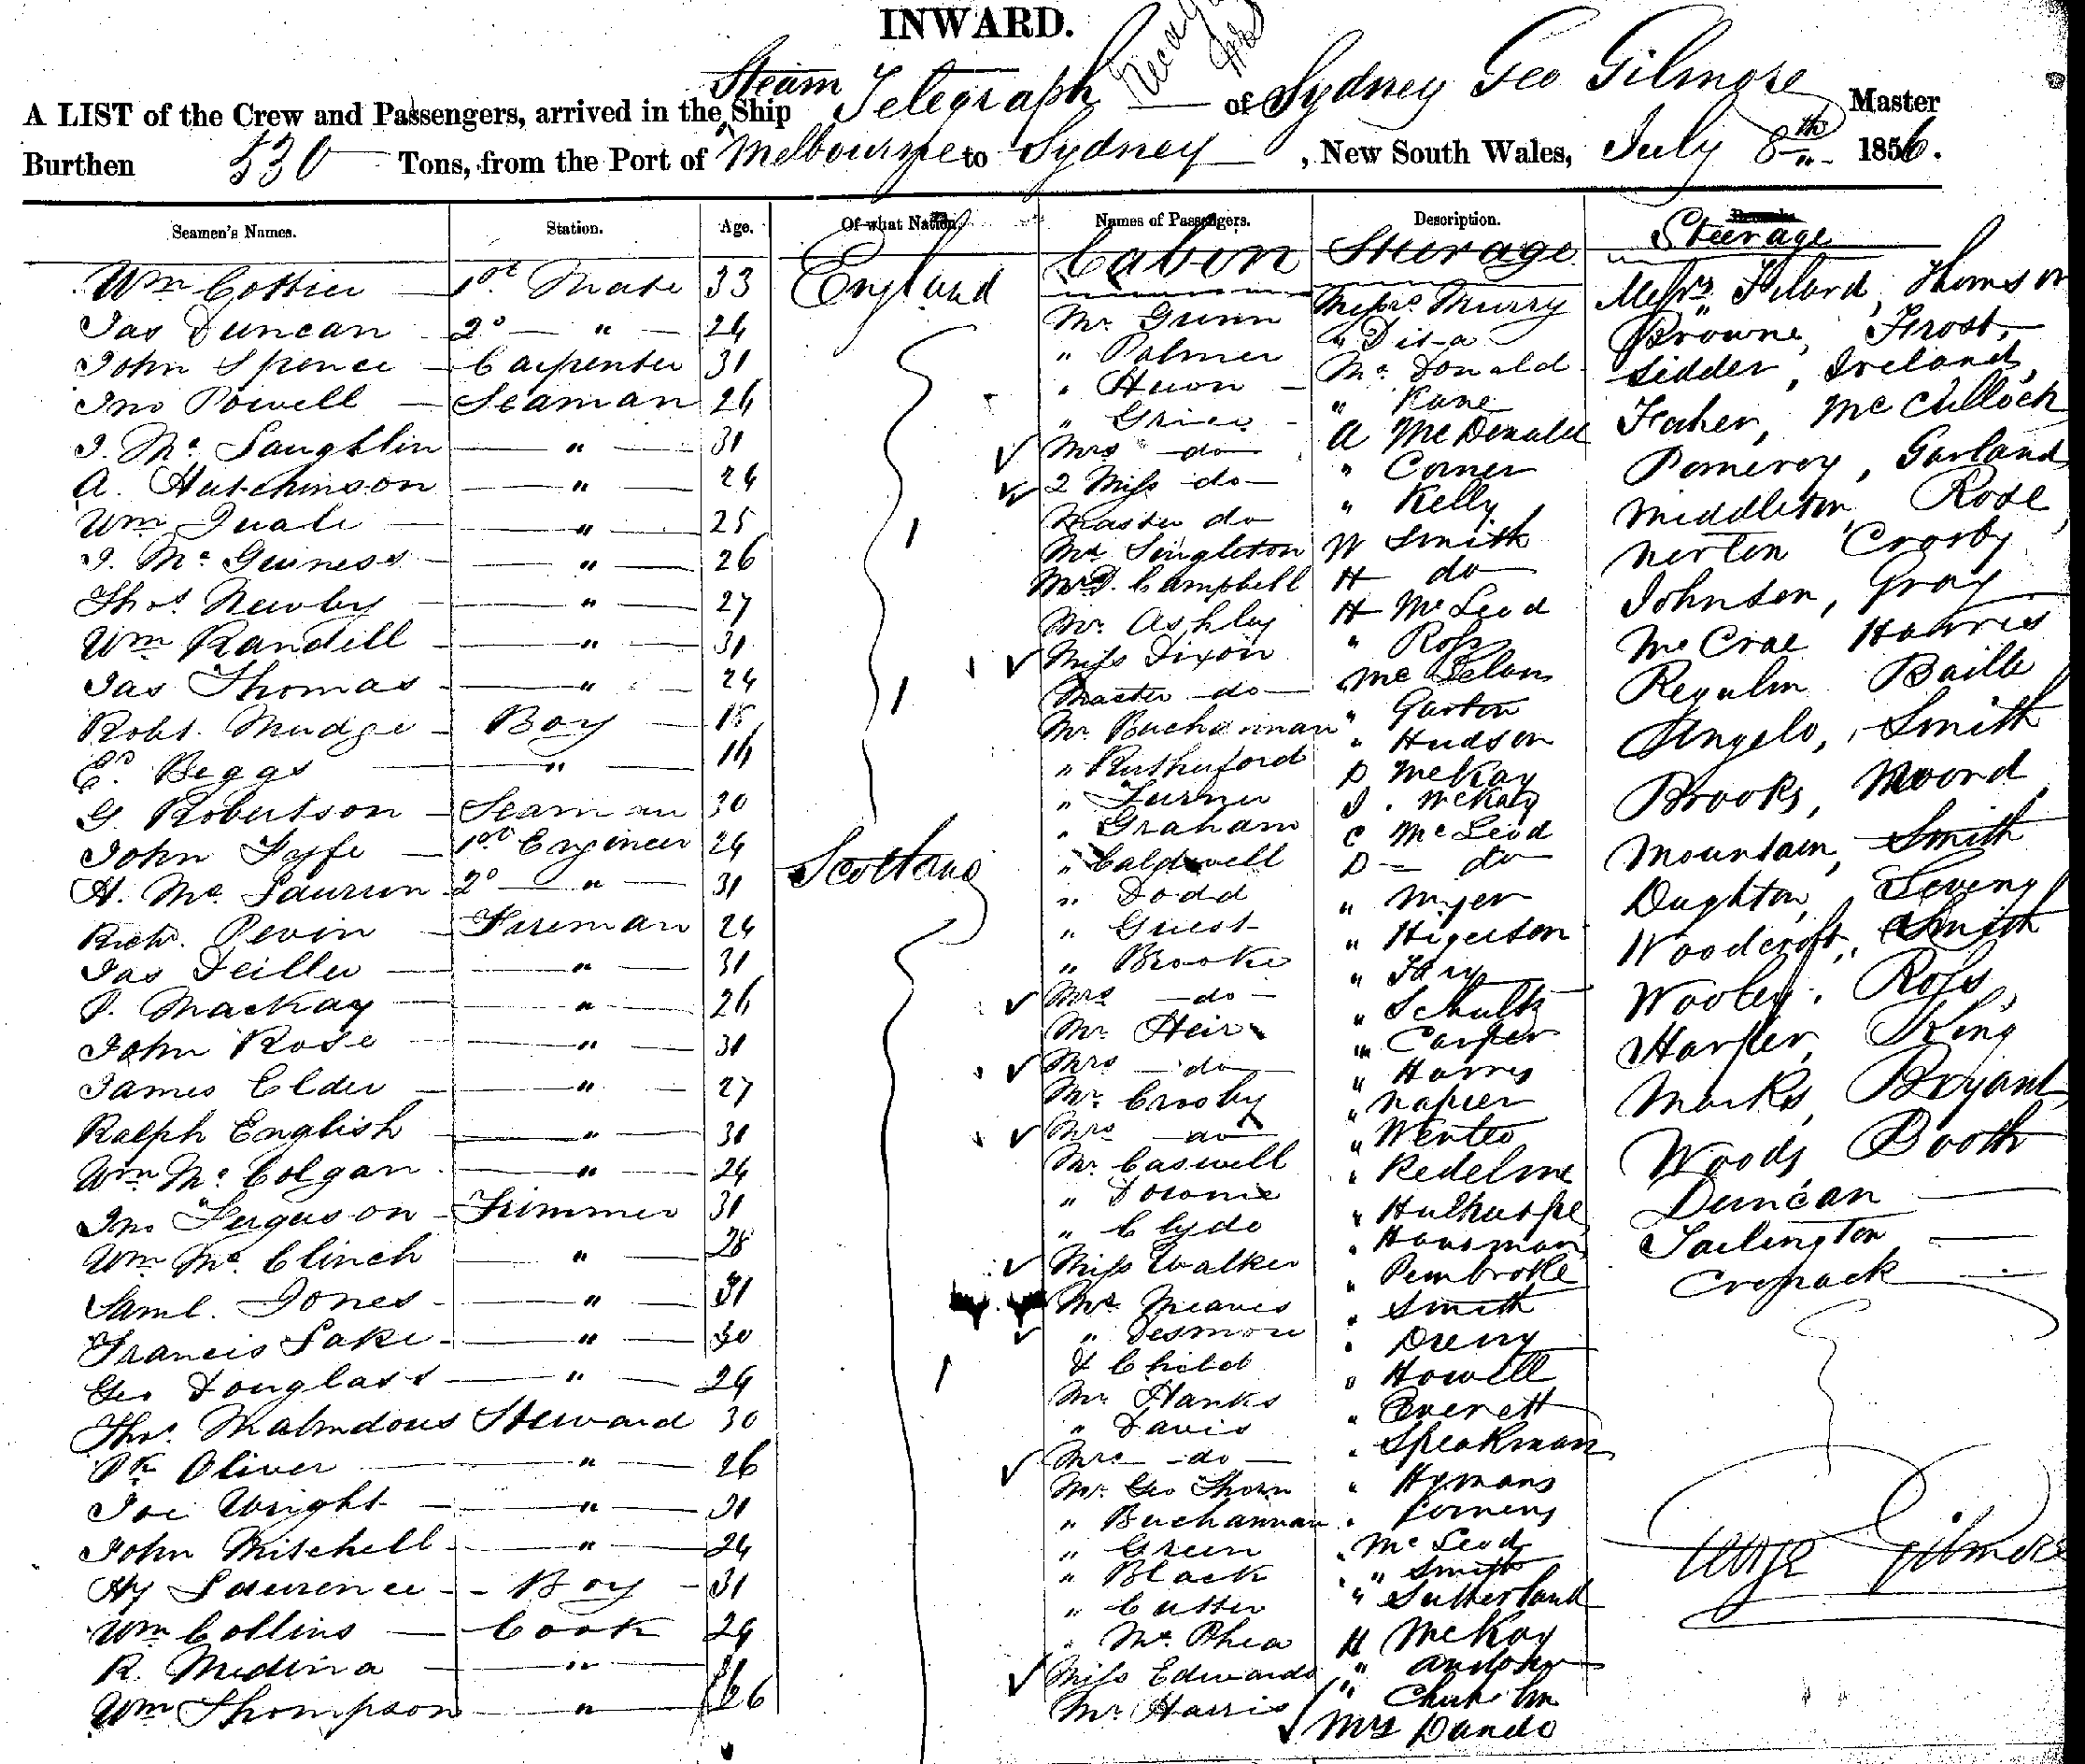 INWARD.
Steam
A LIST of the Crew and Passengers, arrived in the Ship Telegraph of Sydney Geo Gilmore Master
Burthen 530 Tons, from the Port of Melbourne to Sydney, New South Wales, July 8th 1856.
Seamen's Names. Station. Age. Of what Nation. Names of Passengers. Description. Steerage
Cabin Steerage
Wm Cottier 1st Mate 33 England Messrs Murry Messrs Thomson
Jas Duncan 2d " 24 Mr. Gunn " Browne, Frost,
John Spence Carpenter 31 " Palmer Mc Donald Sidder, Ireland,
Jno Powell Seaman 26 " Huon " Kane McCulloch
J. Mc Laughlin " 31 " Grice A McDonald Pomeroy, Garland
A. Hutchinson " 24 Mrs do " Corner Middleton, Rose,
Wm Quale " 25 2 Miss do " Kelly Norton Crosby
J. Mc Guiness " 26 Master do W Smith Johnson, Gray
Thos. Newby " 27 Mr Singleton H do McCrae Harris
Wm Randell " 31 Campbell H McLeod Baille
Jas Thomas " 24 Mr. Ashley " Ross Angelo, Smith
Robt. Mudge Boy 15 Miss Dixon Brooks,
Ed. Beggs " 16 Master do " Garton Mountain, Smith
G. Robertson Seaman 30 Mr. Buchannan " Hudson Dughton,
John Fyfe 1st Engineer 24 Scotland " Rutherford D McKay Woodcroft, Smith
H. Mc Laurin 2d " 31 " Turner J. McKay Wooley, Ross,
Richd. Pevin Fireman 24 " Graham C McLeod Harper, King
Jas " 31 " Caldwell D do Marks, Bryant,
P. Mackay " 26 " Dodd " Myer Woods, Booth
John Rose " 31 " Guest " Higerson Duncan
James Elder " 27 " Brooke " Tarlington
Ralph English " 31 Mrs do " Schultz Cromack
Wm Mc Colgan " 24 Mr Heir " Carper
Jno Ferguson Trimmer 31 Mrs do " Harris
Wm Mc. Clinch " 28 Mr. Crosby " Napier
Saml. Jones " 31 Mrs do "
Francis Lake " 30 Mr. Caswell "
Geo Douglass " 24 " "
Thos. Steward 30 " Clyde "
Pk Oliver " 26 Miss Walker " Pembroke
Joe Wright " 31 Mr Meares " Smith
John Mitchell " 24 " "
Hy Laurence Boy 31 & Child " Howell
Wm Collins Cook 24 Mr Hanks " Everett
R. Medina " " Davis " Speakman
Wm Thompson " 26 Mrs do " Hymans
Mr. Geo Thorn "
" Buchannan " McLeod
" Green " Smith
" Black " Sutherland
" Cutter H McKay
" Mc Rhea "
Miss Edwards " Chisholm
Mr. Harris Mrs Dando
George Gilmore